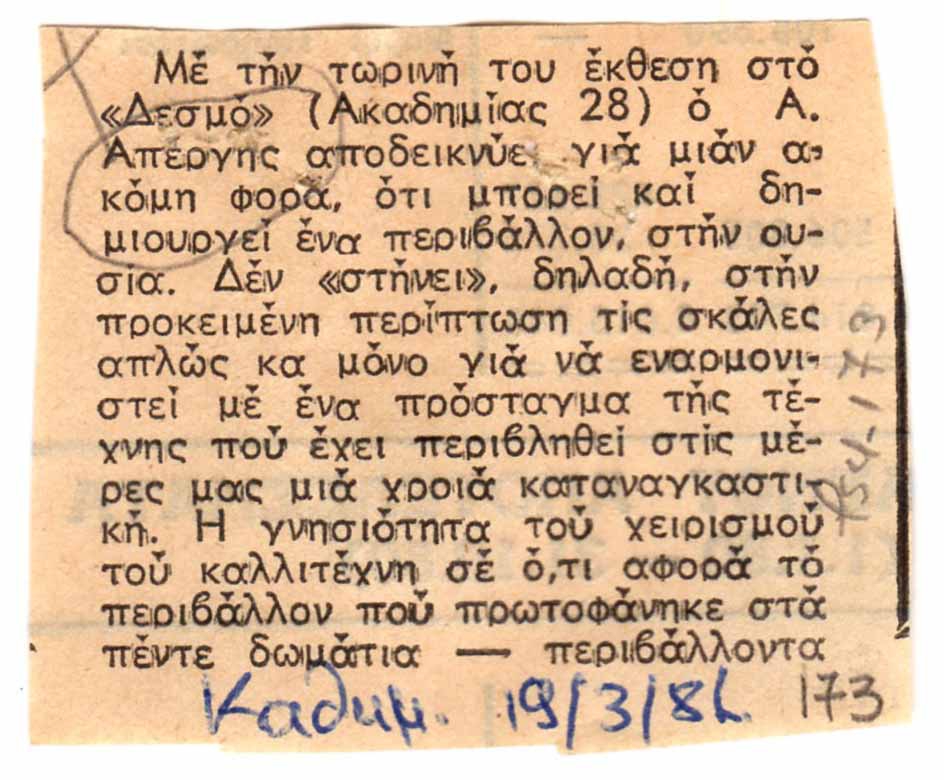 Μέ τήν τωρινή του έκθεση στό
«Δεσμό» (Ακαδημίας 28) ό Α.
Απέργης αποδεικνύει γιά μιάν α-
κόμη φορά, ότι μπορεί καί δη-
μιουργεί ένα περιβάλλον, στήν ου-
σία. Δέν «στήνει», δηλαδή, στήν
προκειμένη περίπτωση τίς σκάλες
απλώς κα μόνο γιά νά εναρμονι-
στεί μέ ένα πρόσταγμα τής τέ-
χνης πού έχει περιβληθεί στίς μέ-
ρες μας μιά χροιά καταναγκαστι-
κή. Η γνησιότητα τού χειρισμού
τού καλλιτέχνη σέ ό,τι αφορά τό
περιβάλλον πού πρωτοφάνηκε στά
πέντε δωμάτια — περιβάλλοντα
Καθημ. 19/3/84
173